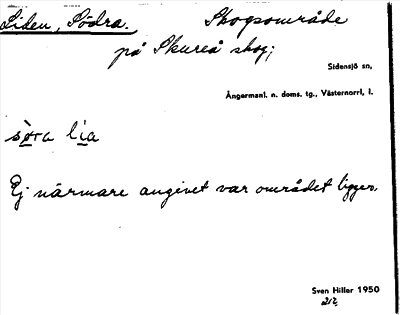 Liden, Södra. Skogsområde
på Skureå skog;
Sidensjö sn,
Ångermanl. n. doms. tg., Västernorrl. l.
sö̀ra lìa
Ej närmare angivet var området ligger.
Sven Hiller 1950
212.